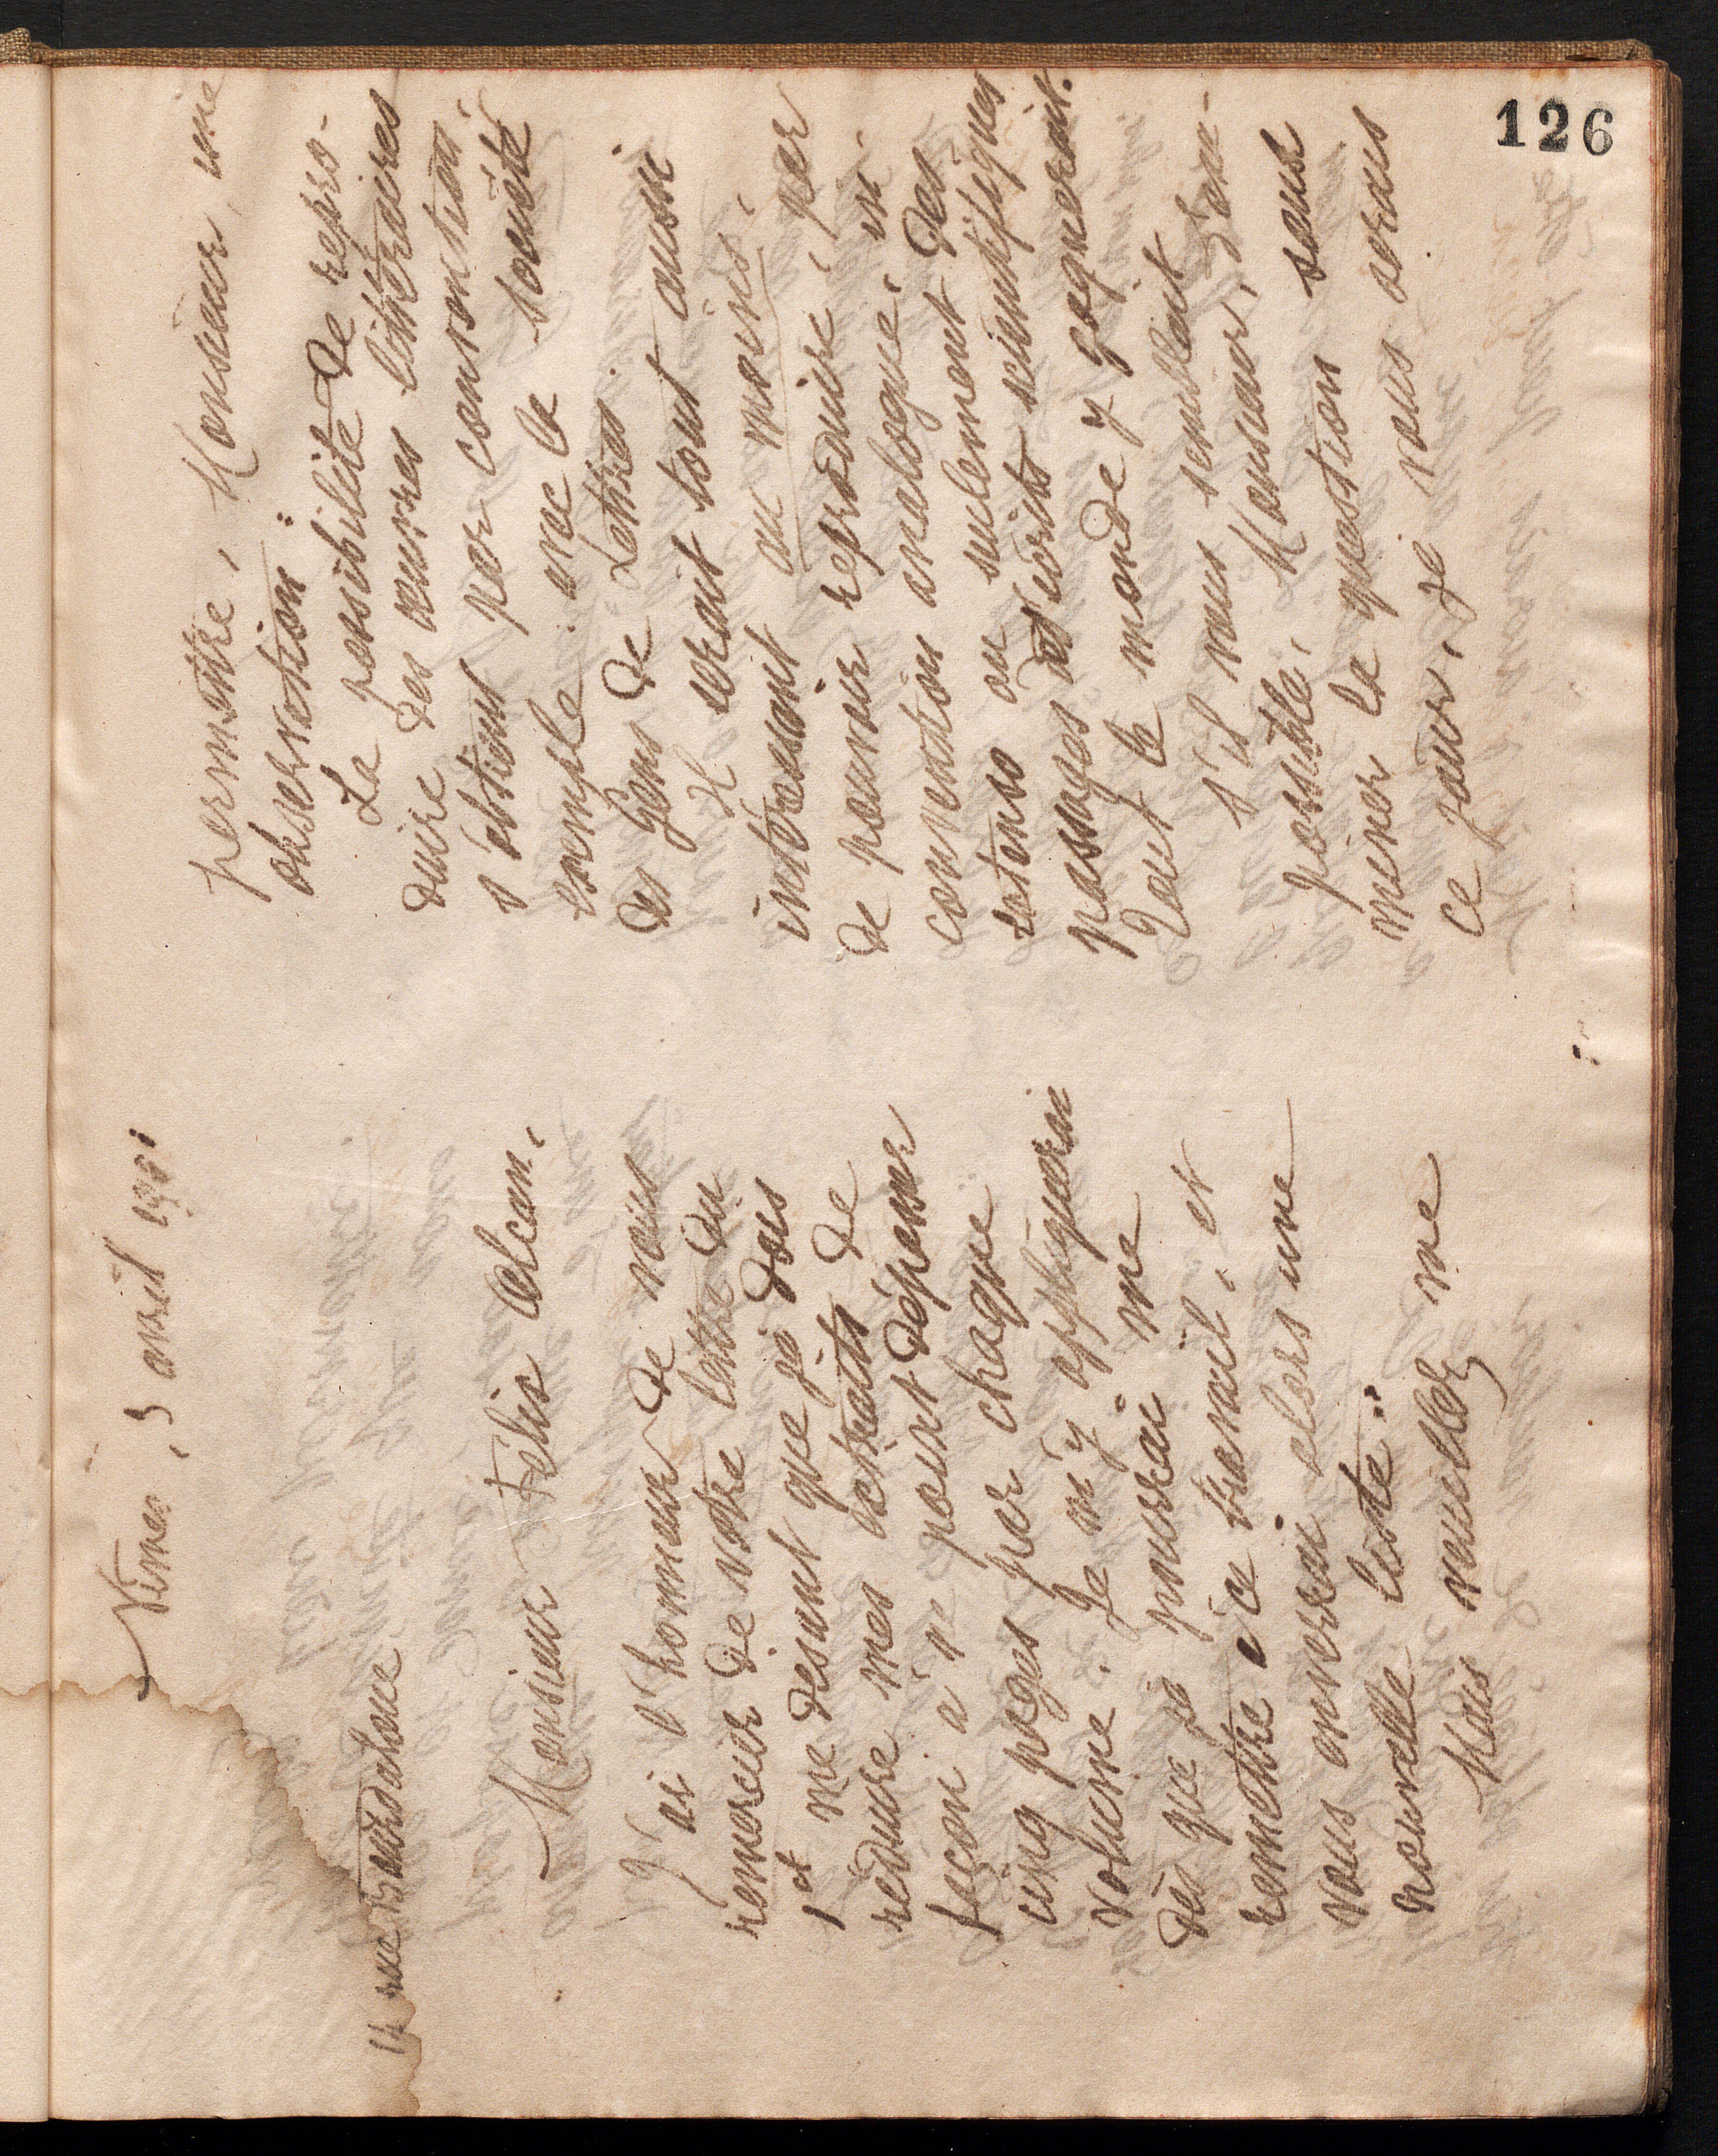 126
Nimes, 3 avril 1901
14 rue Bourdaloue
Monsieur Félix Alcan,
J'ai l'honneur de vous
remercier de votre lettre du
1er me disant que je dois
réduire mes extraits de
façon à ne point dépasser
cinq pages par chaque
volume. Je m'y appliquerai
dès que je pourrai me
remettre à ce travail, et
vous enverrai alors une
nouvelle liste.
Mais veuillez me
permettre, Monsieur, une
observation :
La possibilité de repro-
duire des œuvres littéraires
s'obtient par convention,
exemple avec la Société
des Gens de Lettres.
Il serait tout aussi
intéressant au moins,
de pouvoir reproduire, par
convention analogue, in
extenso ou seulement des
passages d'écrits scientifiques
Tout le monde y gagnerait.
S'il vous semblait
possible, Monsieur, d'exa-
miner la question sous
ce jour, je vous serais